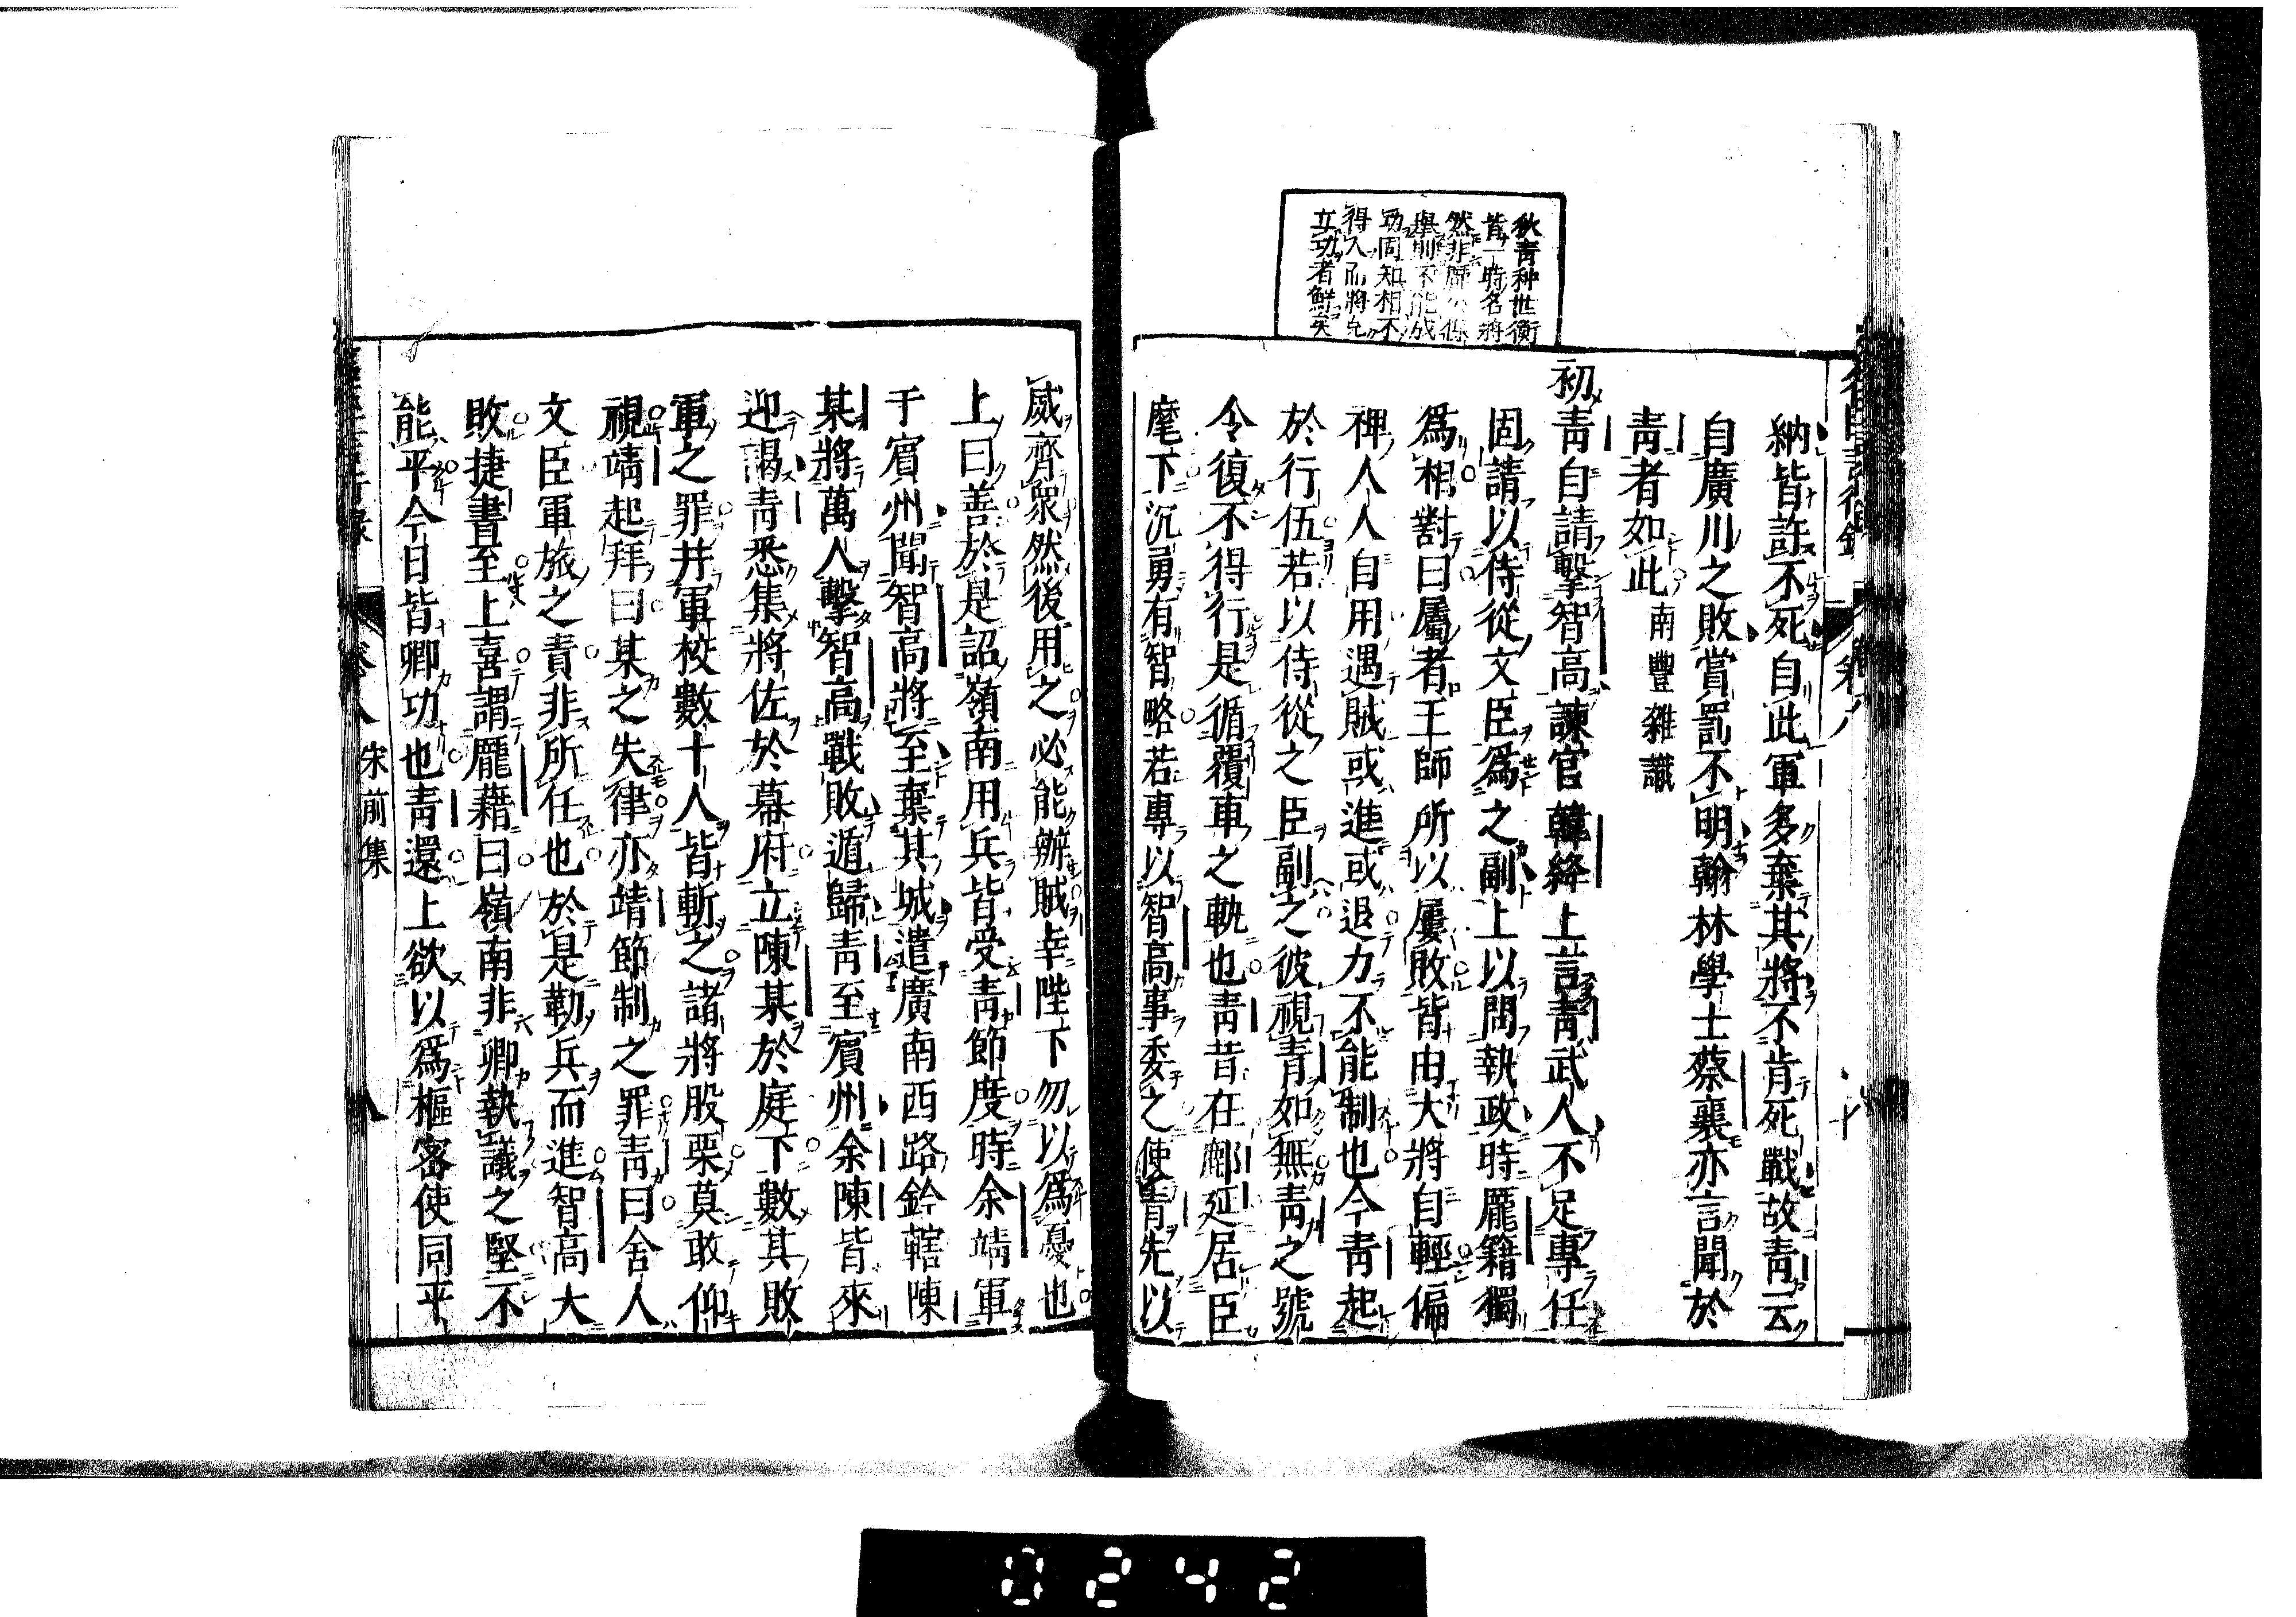 狄青种世衡
皆一時名將
然非龐公保
舉則不能成
功固知相不
得人而將克
立功者鮮矣
納皆許不死自此軍多棄其將不肯死戰故青云
自廣川之敗賞罰不明翰林學士蔡襄亦言聞於
青者如此南豐雜識
初青自請擊智高諫官韓絳上言青武人不足專任
固請以侍從文臣爲之副上以問執政時龐籍獨
爲相對曰屬者王師所以屢敗皆由大將自輕偏
裨人人自用遇賊或進或退力不能制也今青起
於行伍若以侍從之臣副之彼視青如無青之號
令復不得行是循覆車之軌也青昔在鄜延居臣
麾下沉勇有智略若專以智高事委之使青先以
威齊衆然後用之必能辦賊幸陛下勿以爲憂也
上曰善於是詔嶺南用兵皆受青節度時余靖軍
于賓州聞智高將至棄其城遣廣南西路鈐轄陳
某將萬人擊智高戰敗遁歸青至賓州余陳皆來
迎謁青悉集將佐於幕府立陳某於庭下數其敗
軍之罪幷軍校數十人皆斬之諸將股栗莫敢仰
視靖起拜曰某之失律亦靖節制之罪青曰舍人
文臣軍旅之責非所任也於是勒兵而進智高大
敗捷書至上喜謂龐藉曰嶺南非卿執議之堅不
能平今日皆卿功也青還上欲以爲樞密使同平
卷八
宋前集
八
0242